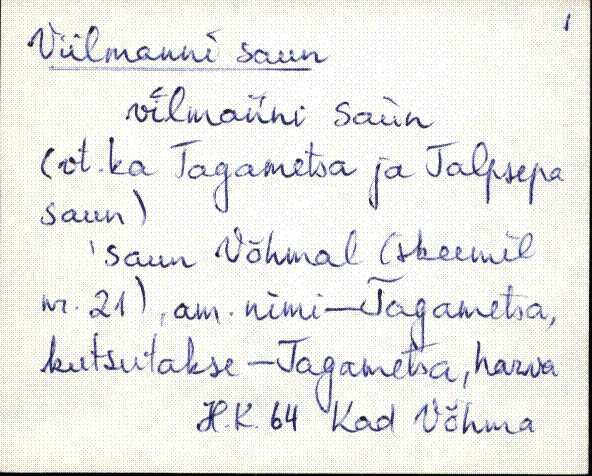 1
Viilmanni saun
vìlmanni saùn
(vt. ka Tagametsa ja Talpsepa
saun)
'saun Võhmal (skeemil
nr. 21), am. nimi—Tagametsa,
kutsutakse—Tagametsa, harva
H.K. 64 Kad Võhma